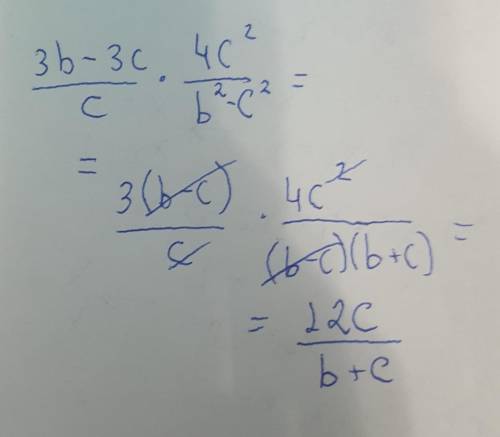 (3b-3c)/c · 4c²/(b²-c²) =
= 3(b-c)/c · 4c²/((b-c)(b+c)) =
= 12c/(b+c)